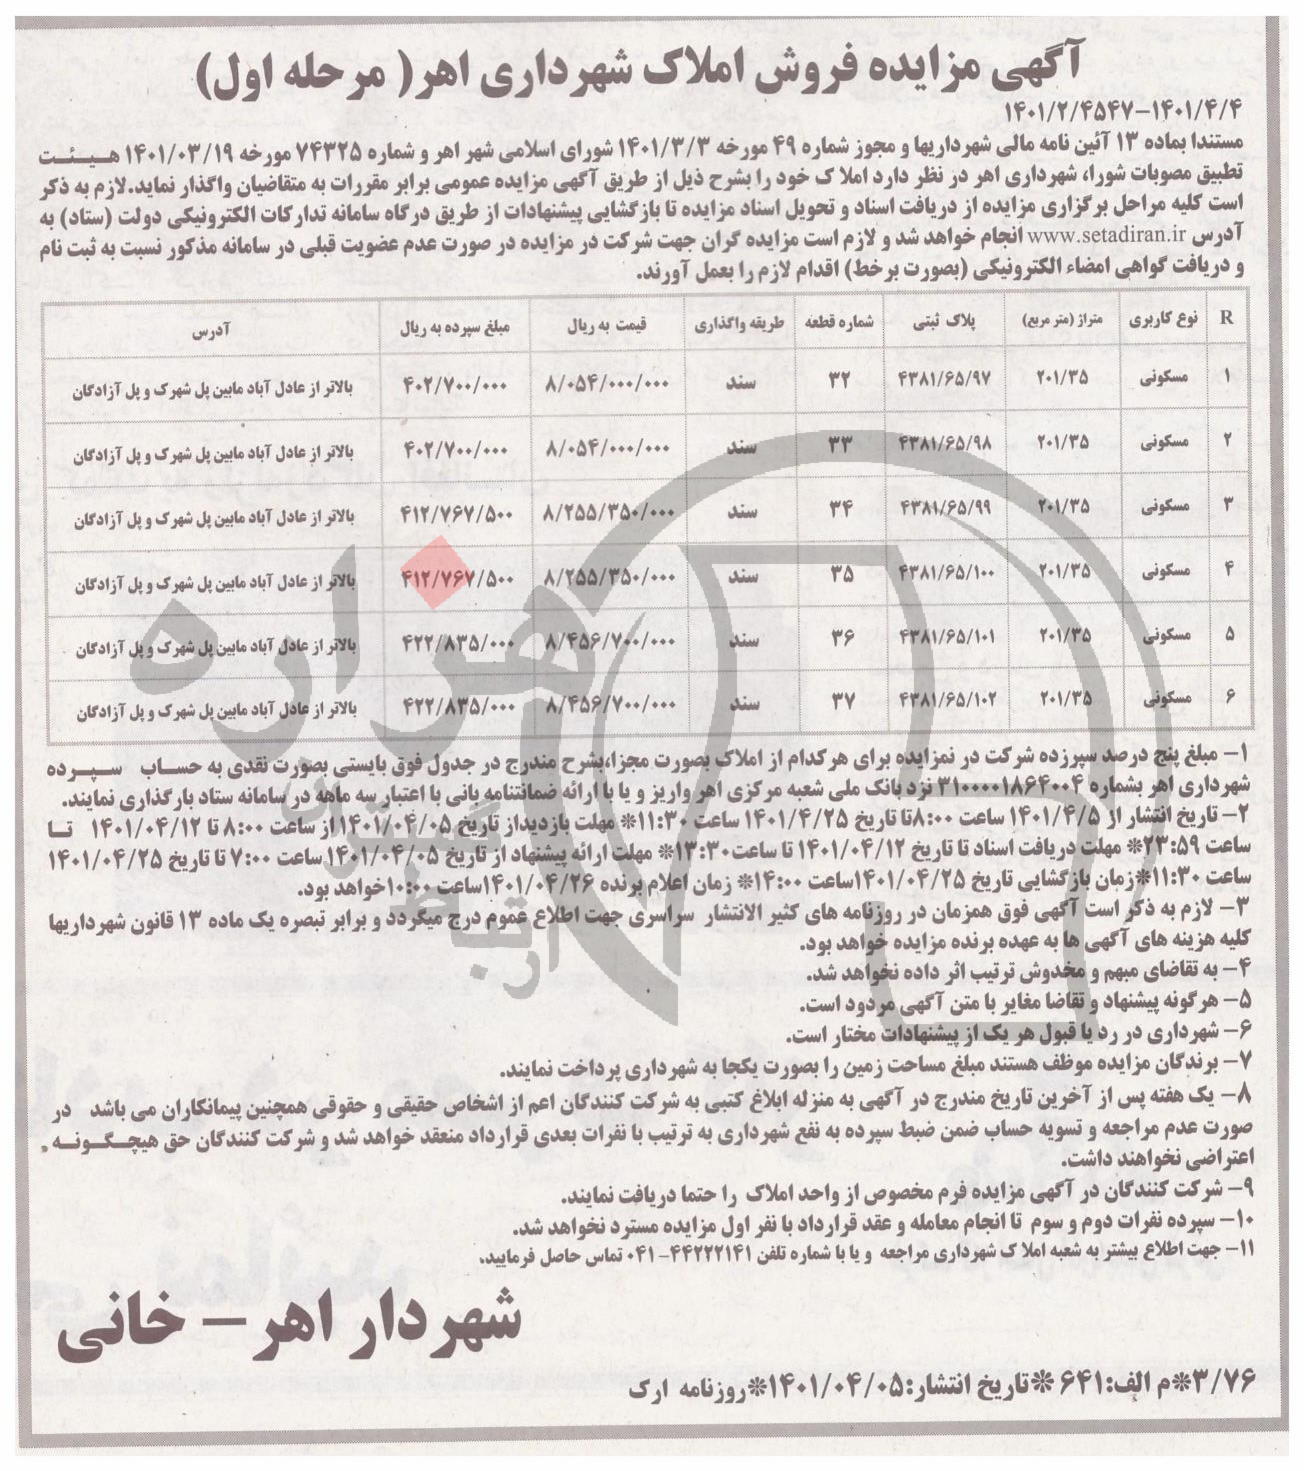 آگهی مزایده فروش املاک شهرداری اهر( مرحله اول)
۱۴۰۱/۲/۴۵۴۷-۱۴۰۱/۴/۴
مستندا بماده ۱۳ آئین نامه مالی شهرداریها و مجوز شماره ۴۹ مورخه ۱۴۰۱/۳/۳ شورای اسلامی شهر اهر و شماره ۷۴۳۲۵ مورخه ۱۴۰۱/۰۳/۱۹ هیـــئـــت
تطبیق مصوبات شورا، شهرداری اهر در نظر دارد املا ک خود را بشرح ذیل از طریق آگهی مزایده عمومی برابر مقررات به متقاضیان واگذار نماید.لازم به ذکر
است کلیه مراحل برگزاری مزایده از دریافت اسناد و تحویل اسناد مزایده تا بازگشایی پیشنهادات از طریق درگاه سامانه تدارکات الکترونیکی دولت (ستاد) به
آدرس www.setadiran.ir انجام خواهد شد و لازم است مزایده گران جهت شرکت در مزایده در صورت عدم عضویت قبلی در سامانه مذکور نسبت به ثبت نام
و دریافت گواهی امضاء الکترونیکی (بصورت برخط) اقدام لازم را بعمل آورند.
R نوع کاربری متراژ (متر مربع) پلاک ثبتی شماره قطعه طریقه واگذاری قیمت به ریال مبلغ سپرده به ریال آدرس
۱ مسکونی ۲۰۱/۳۵ ۴۳۸۱/۶۵/۹۷ ۳۲ سند ۸/۰۵۴/۰۰۰/۰۰۰ ۴۰۲/۷۰۰/۰۰۰ بالاتر از عادل آباد مابین پل شهرک و پل آزادگان
۲ مسکونی ۲۰۱/۳۵ ۴۳۸۱/۶۵/۹۸ ۳۳ سند ۸/۰۵۴/۰۰۰/۰۰۰ ۴۰۲/۷۰۰/۰۰۰ بالاتر از عادل آباد مابین پل شهرک و پل آزادگان
۳ مسکونی ۲۰۱/۳۵ ۴۳۸۱/۶۵/۹۹ ۳۴ سند ۸/۲۵۵/۳۵۰/۰۰۰ ۴۱۲/۷۶۷/۵۰۰ بالاتر از عادل آباد مابین پل شهرک و پل آزادگان
۴ مسکونی ۲۰۱/۳۵ ۴۳۸۱/۶۵/۱۰۰ ۳۵ سند ۸/۲۵۵/۳۵۰/۰۰۰ ۴۱۲/۷۶۷/۵۰۰ بالاتر از عادل آباد مابین پل شهرک و پل آزادگان
۵ مسکونی ۲۰۱/۳۵ ۴۳۸۱/۶۵/۱۰۱ ۳۶ سند ۸/۴۵۶/۷۰۰/۰۰۰ ۴۲۲/۸۳۵/۰۰۰ بالاتر از عادل آباد مابین پل شهرک و پل آزادگان
۶ مسکونی ۲۰۱/۳۵ ۴۳۸۱/۶۵/۱۰۲ ۳۷ سند ۸/۴۵۶/۷۰۰/۰۰۰ ۴۲۲/۸۳۵/۰۰۰ بالاتر از عادل آباد مابین پل شهرک و پل آزادگان
۱- مبلغ پنج درصد سپرزده شرکت در نمزایده برای هرکدام از املاک بصورت مجزا،بشرح مندرج در جدول فوق بایستی بصورت نقدی به حساب ســپــرده
شهرداری اهر بشماره ۳۱۰۰۰۰۱۸۶۴۰۰۴ نزد بانک ملی شعبه مرکزی اهر واریز و یا با ارائه ضمانتنامه بانی با اعتبار سه ماهه در سامانه ستاد بارگذاری نمایند.
۲- تاریخ انتشار از ۱۴۰۱/۴/۵ ساعت ۸:۰۰تا تاریخ ۱۴۰۱/۴/۲۵ ساعت ۱۱:۳۰* مهلت بازدیداز تاریخ ۱۴۰۱/۰۴/۰۵از ساعت ۸:۰۰ تا ۱۴۰۱/۰۴/۱۲ تــا
ساعت ۲۳:۵۹* مهلت دریافت اسناد تا تاریخ ۱۴۰۱/۰۴/۱۲ تا ساعت۱۳:۳۰* مهلت ارائه پیشنهاد از تاریخ ۱۴۰۱/۰۴/۰۵ساعت ۷:۰۰ تا تاریخ ۱۴۰۱/۰۴/۲۵
ساعت ۱۱:۳۰*زمان بازگشایی تاریخ ۱۴۰۱/۰۴/۲۵ساعت ۱۴:۰۰* زمان اعلام برنده ۱۴۰۱/۰۴/۲۶ساعت ۱۰:۰۰خواهد بود.
۳- لازم به ذکر است آگهی فوق همزمان در روزنامه های کثیر الانتشار سراسری جهت اطلاع عموم درج میگردد و برابر تبصره یک ماده ۱۳ قانون شهرداریها
کلیه هزینه های آگهی ها به عهده برنده مزایده خواهد بود.
۴- به تقاضای مبهم و مخدوش ترتیب اثر داده نخواهد شد.
۵- هرگونه پیشنهاد و تقاضا مغایر با متن آگهی مردود است.
۶- شهرداری در رد یا قبول هر یک از پیشنهادات مختار است.
۷- برندگان مزایده موظف هستند مبلغ مساحت زمین را بصورت یکجا به شهرداری پرداخت نمایند.
۸- یک هفته پس از آخرین تاریخ مندرج در آگهی به منزله ابلاغ کتبی به شرکت کنندگان اعم از اشخاص حقیقی و حقوقی همچنین پیمانکاران می باشد در
صورت عدم مراجعه و تسویه حساب ضمن ضبط سپرده به نفع شهرداری به ترتیب با نفرات بعدی قرارداد منعقد خواهد شد و شرکت کنندگان حق هیچــگـونــه
اعتراضی نخواهند داشت.
۹- شرکت کنندگان در آگهی مزایده فرم مخصوص از واحد املاک را حتما دریافت نمایند.
۱۰- سپرده نفرات دوم و سوم تا انجام معامله و عقد قرارداد با نفر اول مزایده مسترد نخواهد شد.
۱۱- جهت اطلاع بیشتر به شعبه املا ک شهرداری مراجعه و یا با شماره تلفن ۴۴۲۲۲۱۴۱-۰۴۱ تماس حاصل فرمایید.
شهردار اهر - خانی
۳/۷۶*م الف:۶۴۱ *تاریخ انتشار:۱۴۰۱/۰۴/۰۵*روزنامه ارک
هزاره